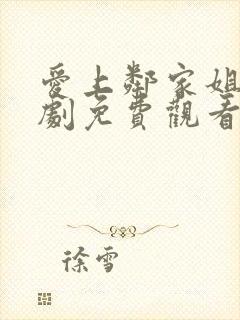 愛上鄰家姐
劇免費觀看
徐雪